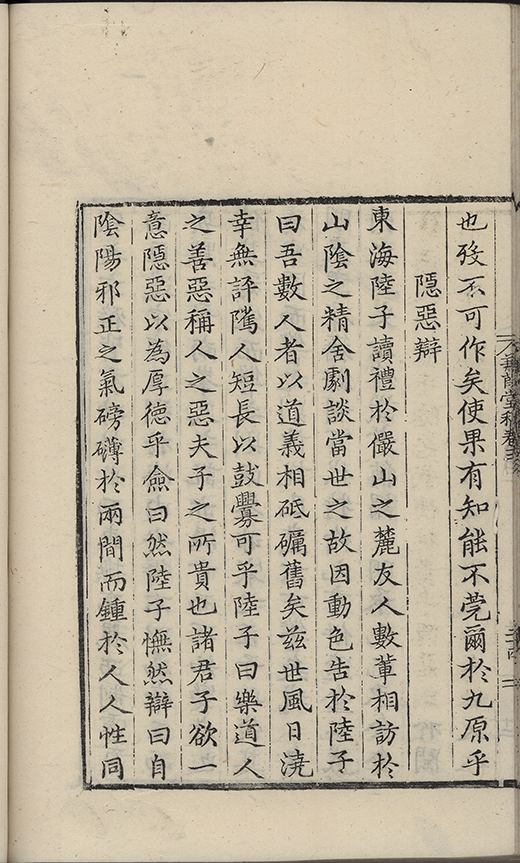 也歿不可作矣使果有知能不莞爾於九原乎
隱惡辯
東海陸子讀禮於儼山之麓友人數輩相訪於
山陰之精舍劇談當世之故因動色告於陸子
曰吾數人者以道義相砥礪舊矣玆世風日澆
幸無評隲人短長以鼓釁可乎陸子曰樂道人
之善惡稱人之惡夫子之所貴也諸君子欲一
意隱惡以為厚德乎僉曰然陸子憮然辯曰自
陰陽邪正之氣磅礴於兩間而鍾於人人性同